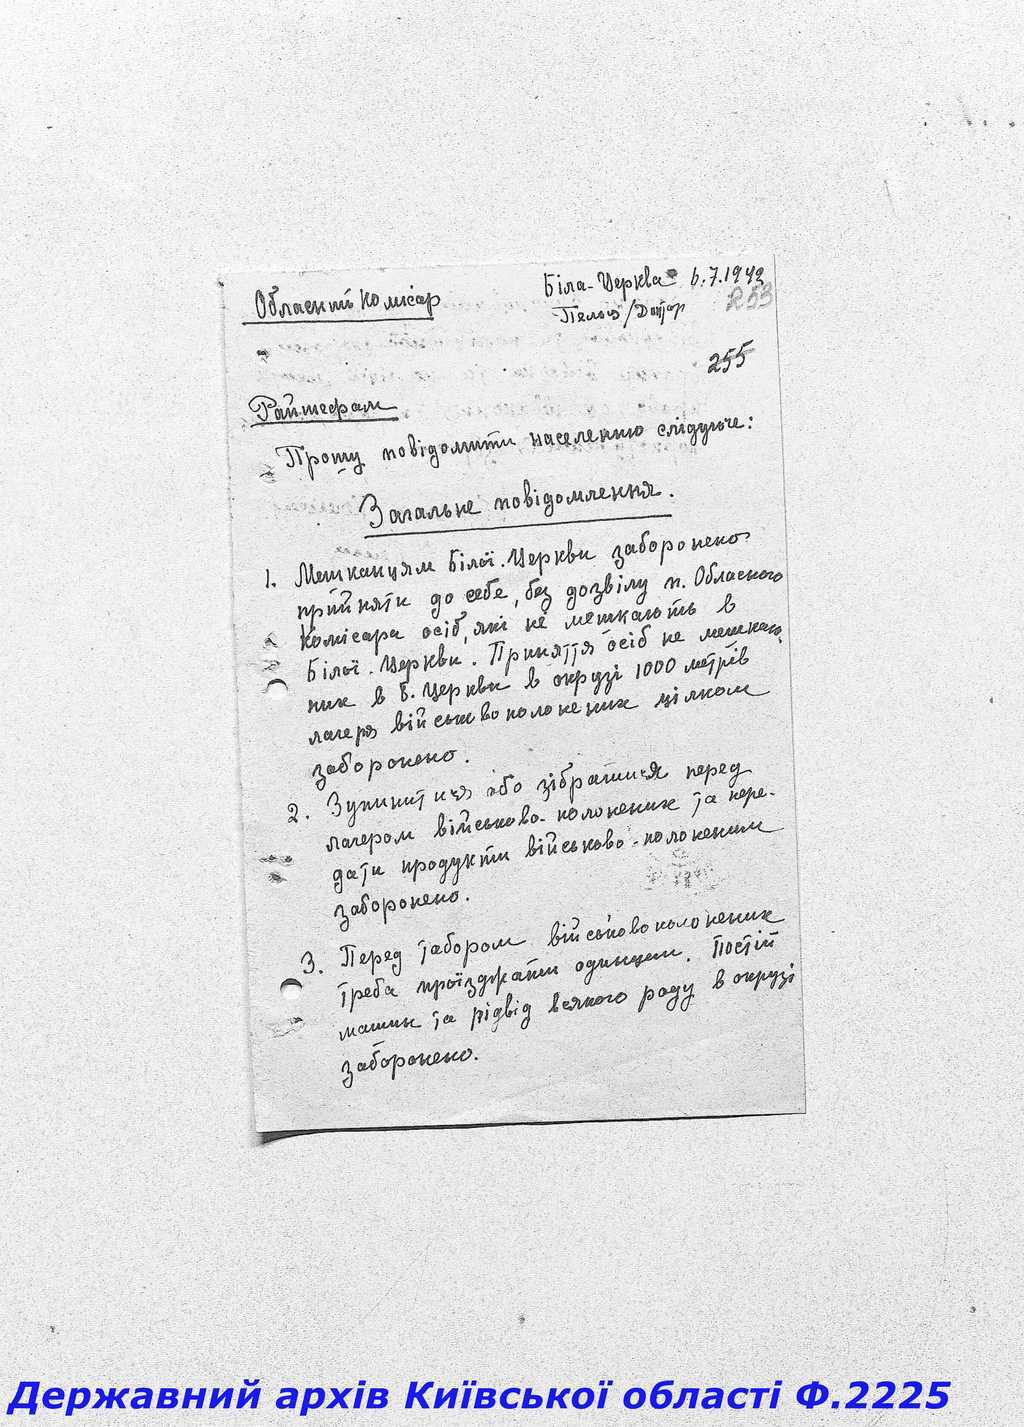 Обласний Комісар
Біла-Церква 6.7.1942
253
255
Райшефам
Прошу повідомити населенню слідуюче:
Загальне повідомлення.
1. Мешканцям Білої.Церкви заборонено
прийняти до себе, без дозвілу п. Обласного
Комісара осіб, які не мешкають в
Білої.Церкви. Приняття осіб не мешкаю-
них в Б.Церкви в окрузі 1000 метрів
лагеря військовополонених цілком
заборонено.
2. Зупинитися або зібратися перед
лагером військово-полонених та пере-
дати продукти військово-полоненим
заборонено.
3. Перед табором військовополонених
треба проїзджати одинцем. Постій
машин та підвід всякого роду в окрузі
заборонено.
Державний архів Київської області Ф.2225